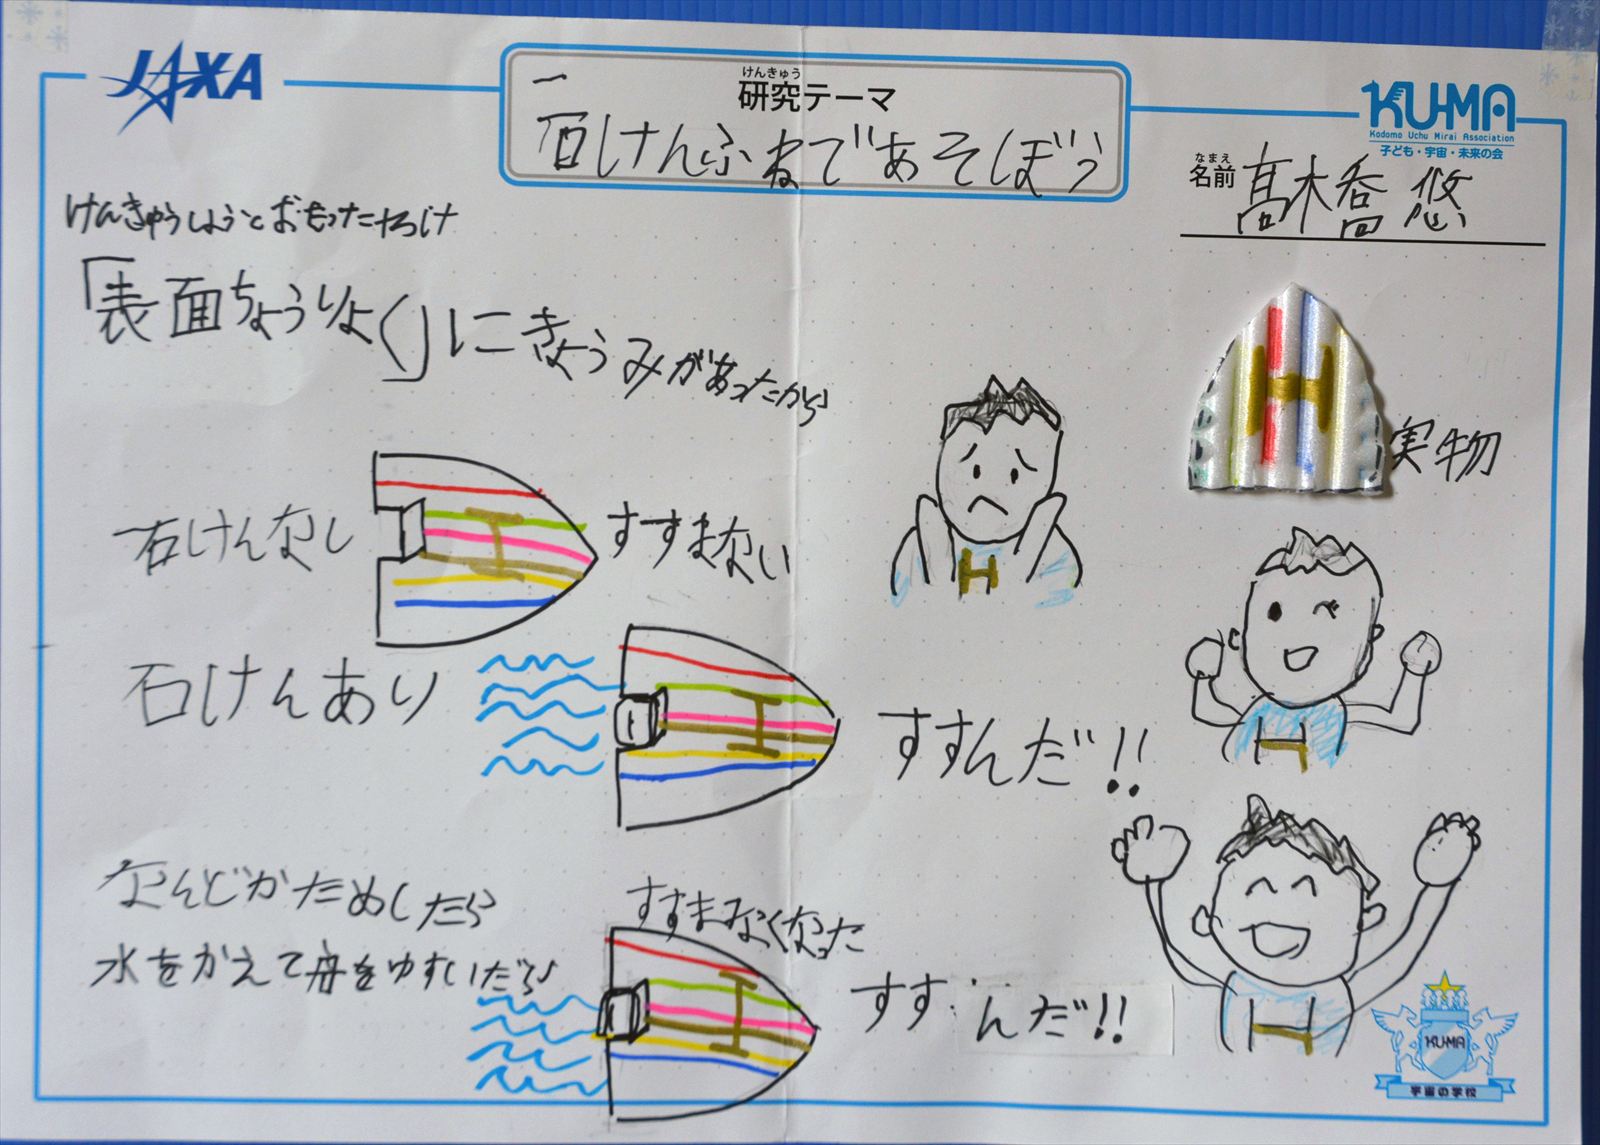 JAXA
けんきゅう
研究テーマ
石けんふねであそぼう
KUMA
Kodomo Uchu Mirai Association
子ども・宇宙・未来の会
なまえ
名前 髙木喬悠
けんきゅうしようとおもったわけ
「表面ちょうりょく」にきょうみがあったから
実物
石けんなし
すすまない
石けんあり
すすんだ!!
なんどかためしたら
すすまなくなった
水をかえて舟をゆすいだら
すすんだ!!
H
H
H
H
H
H
H
KU-MA
宇宙の学校